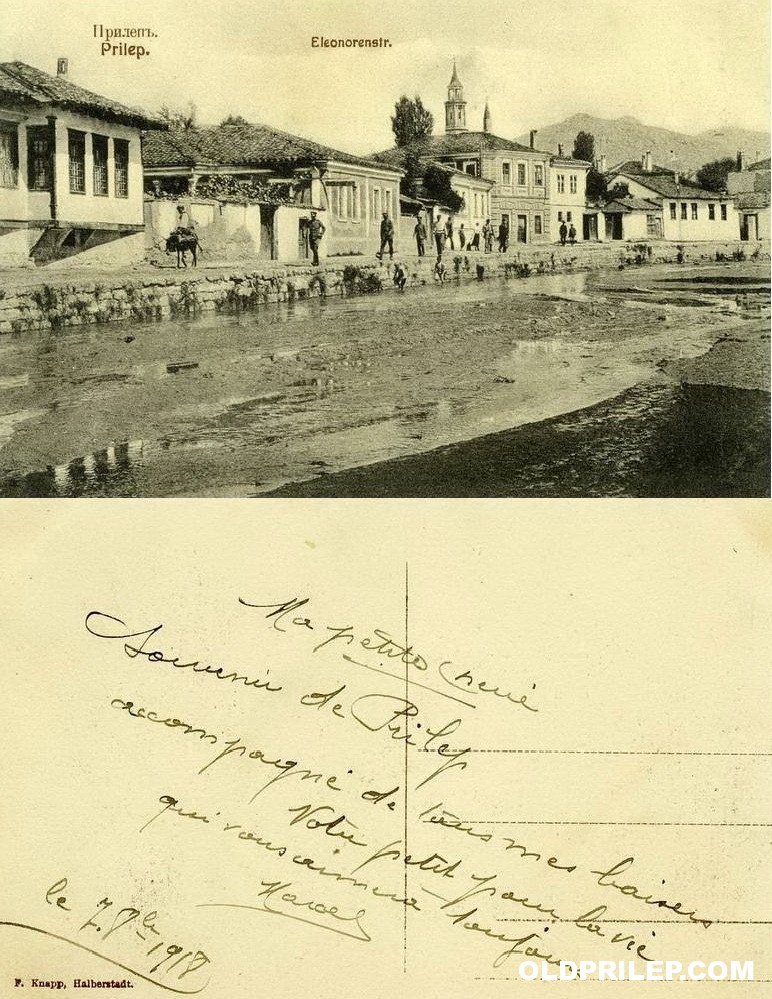 Прилепъ.
Prilep.
Eleonorenstr.
Ma petite
Souvenir de Prilep
accompagné de tous mes baisers
Votre petit pour la vie
qui vous aimera toujours
Marcel
le 7. 8bre 1918
F. Knapp, Halberstadt.
OLDPRILEP.COM